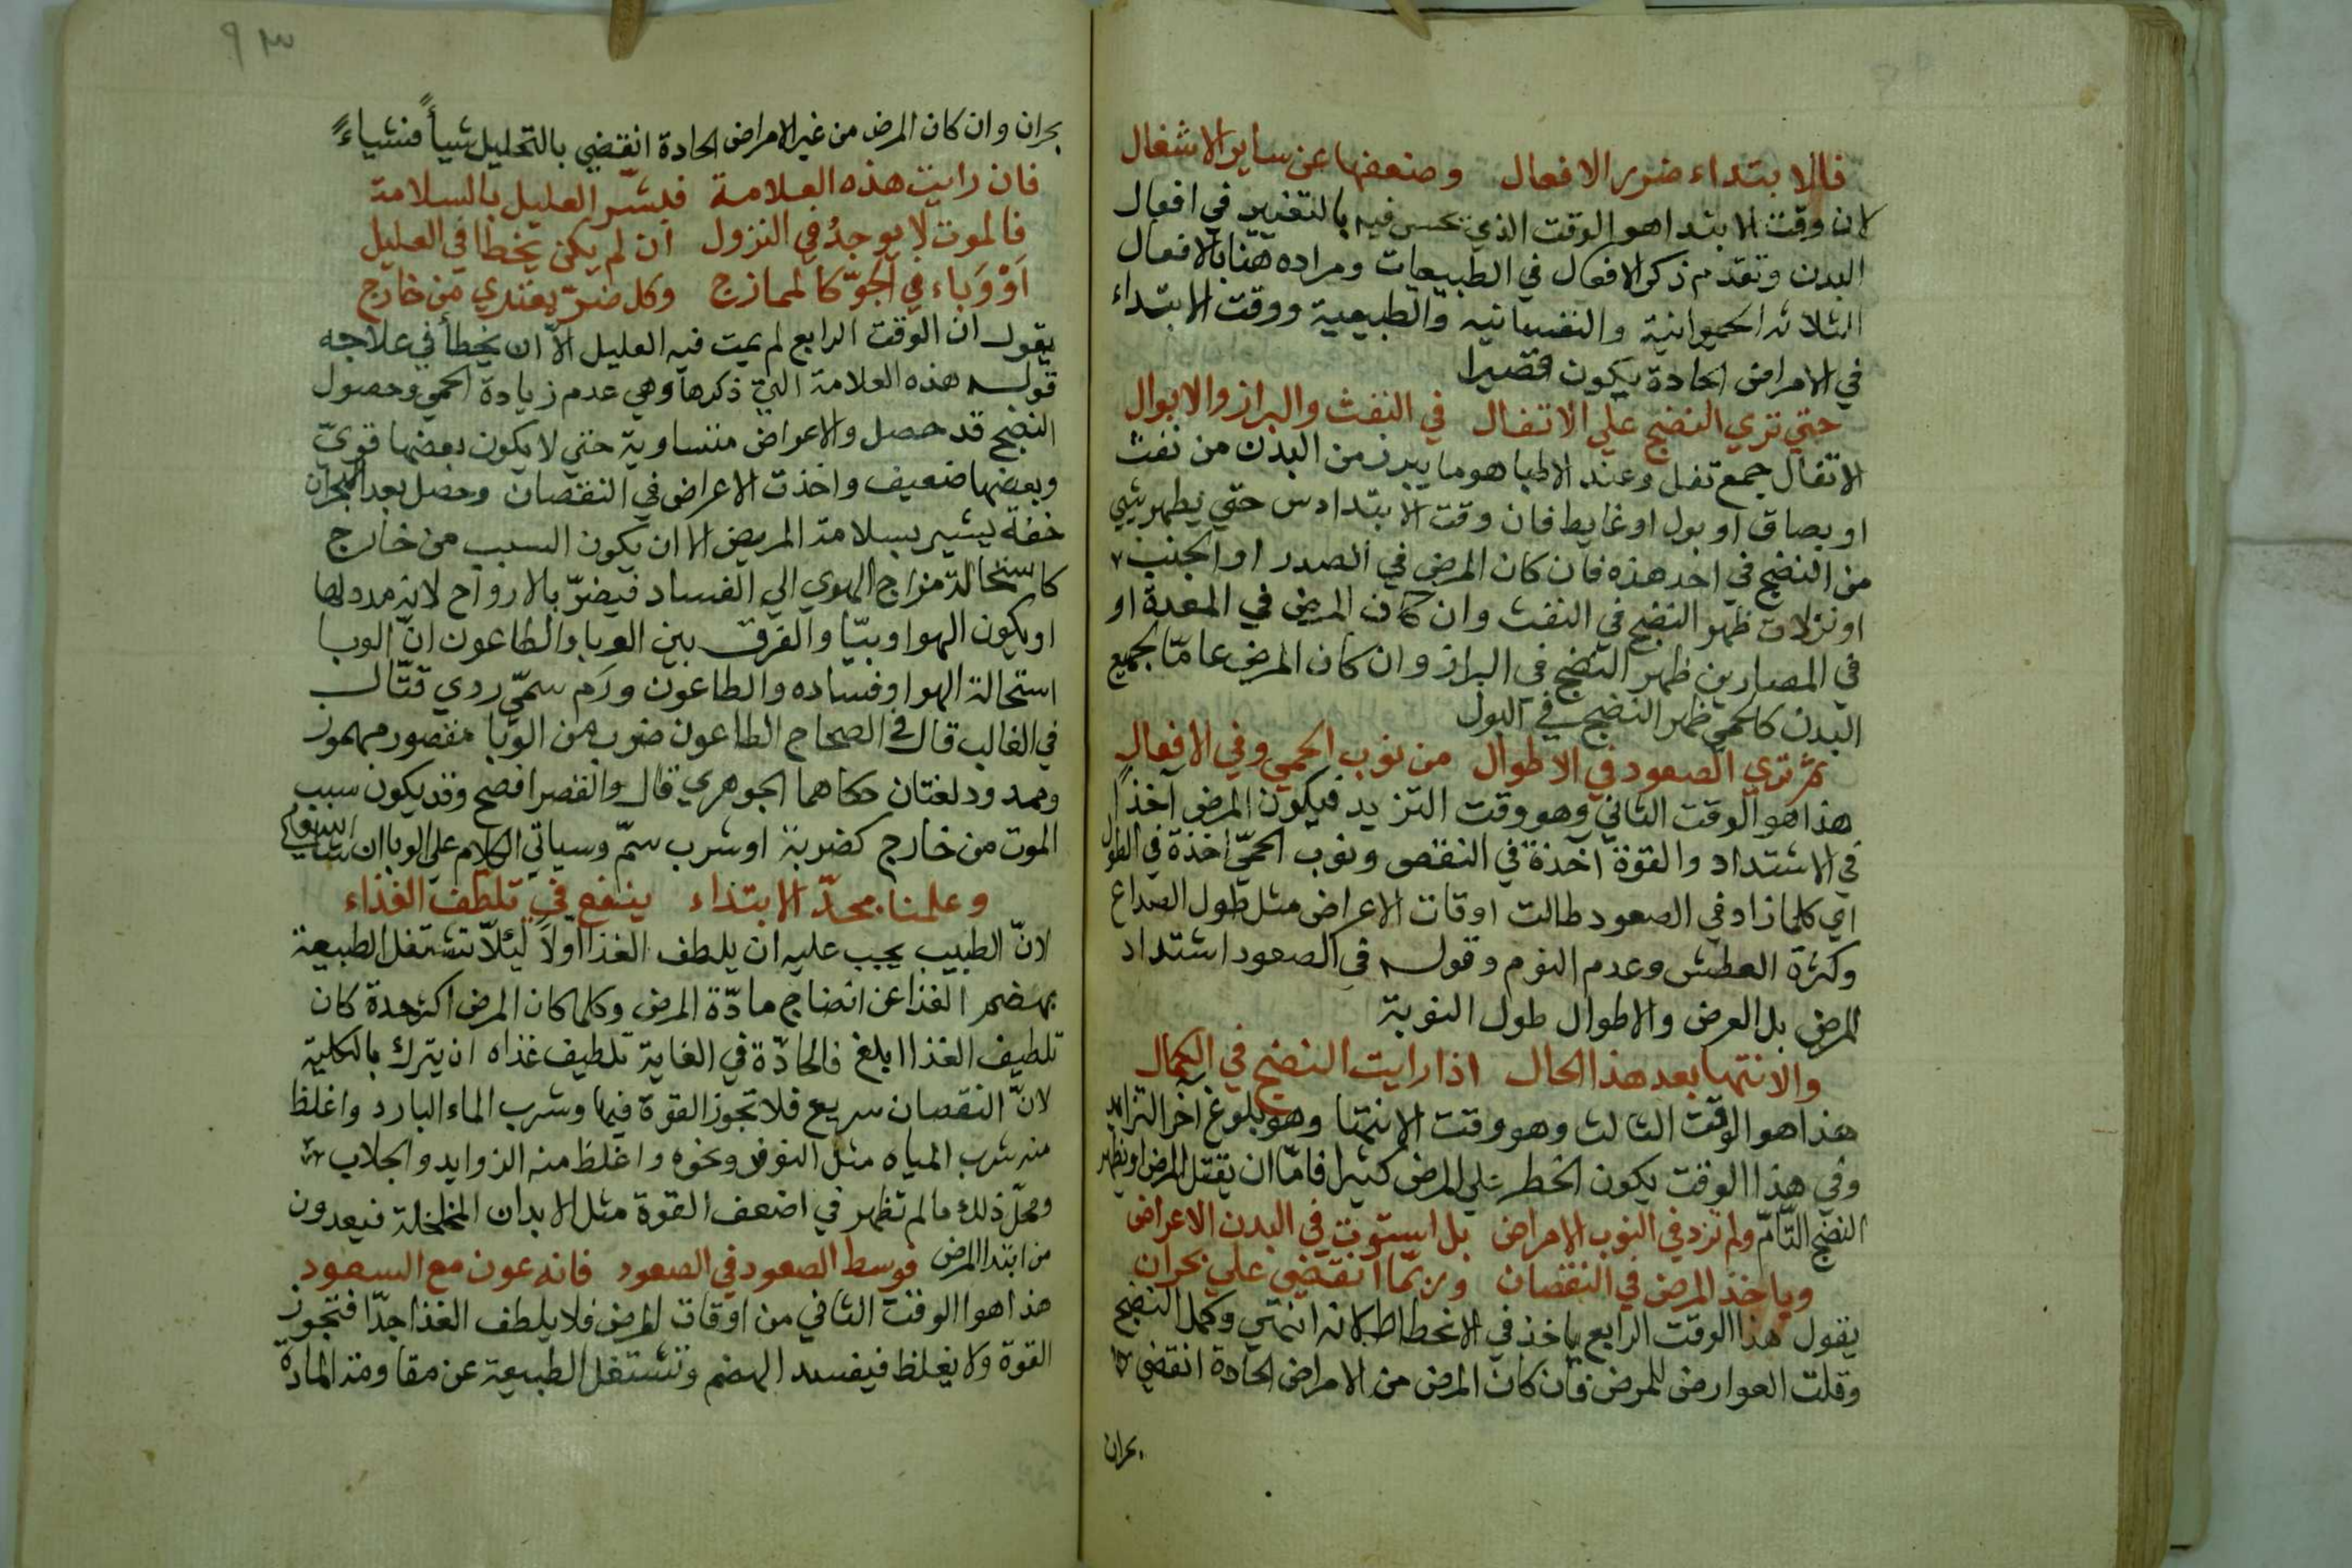 فالابتداء ضرر الافعال وضعفها عن ساير الاشغال
لان وقت الابتدا هو الوقت الذي تحس فيه بالتغيير في افعال
البدن وتقدم ذكر الافعال في الطبيعات ومراده هنا بالافعال
الثلاثه الحيوانية والنفسانيه والطبيعية ووقت الابتداء
في الامراض الحادة يكون قصيرا
حتي تري النضج علي الاتفال في النفث والبراز والابوال
الاتفال جمع تفل وعند الاطبا هو ما يبرز من البدن من نفث
او بصاق او بول او غايط فان وقت الابتدا من حتي يظهر شي
من النضج في احد هذه فان كان المرض في الصدر او الجنب
او نزلات ظهر النضج في النفث وان كان المرض في المعدة او
في المصارين ظهر النضج في البراز وان كان المرض عامّا لجميع
البدن كالحمي ظهر النضج في البول
ثم تري الصعود في الاطوال من نوب الحمي وفي الافعال
هذا هو الوقت الثاني وهو وقت التزيد فيكون المرض آخذًا
في الاشتداد والقوة آخذة في النقص ونوب الحمّي آخذة في الطول
اي كلما زاد في الصعود طالت اوقات الاعراض مثل طول الصداع
وكثرة العطش وعدم النوم وقوله في الصعود اشتداد
المرض بل العرض والاطوال طول النوبة
والانتها بعد هذا الحال اذا رايت النضج في الكمال
هذا هو الوقت الثالث وهو وقت الانتها وهو بلوغ آخر التزايد
وفي هذا الوقت يكون الخطر علي المرض كثيرا فامّا ان يقتل المرض او يظهر
النضج التّامّ ولم تزد في النوب الامراض بل استوت في البدن الاعراض
وياخذ المرض في النقصان وربّما انقضي علي بحران
يقول هذا الوقت الرابع ياخذ في الانحطاط لانه انتهي وكمل النضج
وقلت العوارض للمرض فان كان المرض من الامراض الحادة انقضي
بحران
٩٣
بحران وان كان المرض من غير الامراض الحادة انقضي بالتحليل شيأً فشياءً
فان رايت هذه العلامة فبشّر العليل بالسلامة
فالموت لا يوجدُ في النزول ان لم يكن يخطا في العليل
اَوْ وَباء في الجوّ كالممازج وكل ضرّ يعتدي من خارج
يقول ان الوقت الرابع لم يمت فيه العليل الاّ ان يخطأ في علاجه
قوله هذه العلامة التي ذكرها وهي عدم زيادة الحمي وحصول
النضج قد حصل والاعراض متساوية حتي لا يكون بعضها قويّ
وبعضها ضعيف واخذت الاعراض في النقصان وحصل بعد البحران
خفة ليشير بسلامة المريض الا ان يكون السبب من خارج
كاستحالة مزاج الهوي الي الفساد فيضرّ بالارواح لانه مدد لها
او يكون الهوا وبيّا والفرق بين الوبا والطاعون انّ الوبا
استحالة الهوا وفساده والطاعون ورَم سمّي ردي قتّال
في الغالب قال في الصحاح الطاعون ضرب من الوَبا مقصور مهموز
وممدود لغتان حكاهما الجوهري قال والقصر افصح وقد يكون سبب
الموت من خارج كضربة او شرب سمّ وسياتي الكلام علي الوبا ان شاء
وعلمنا بحدّ الابتداء ينفع في تلطّف الغذاء
لانّ الطبيب يجب عليه ان يلطف الغذا اولاً ليئلاّ تشتغل الطبيعة
بهضم الغذا عن انضاج مادّة المرض وكلما كان المرض اكثر حدة كان
تلطيف الغذا ابلغ فالحادّة في الغاية تلطيف غذاه ان يترك بالكلية
لانّ النقصان سريع فلا تجوز القوة فيها وشرب الماء البارد واغلظ
منه شرب المياه مثل النوفر ونحوه واغلظ منه الزوايد والجلاب
ومحلّ ذلك ما لم تظهر في اضعف القوة مثل الابدان المخلخلة فيعدون
من ابتدا المرض فوسط الصعود في الصعود فانه عون مع السعود
هذا هوا الوقت الثاني من اوقات المرض فلا يلطف الغذا جدّا فتجوز
القوة ولا يغلظ فيفسد الهضم وتشتغل الطبيعة عن مقاومة المادة